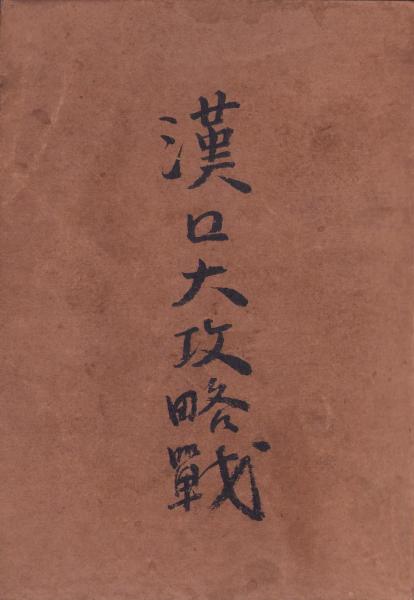 漢口大攻略戰